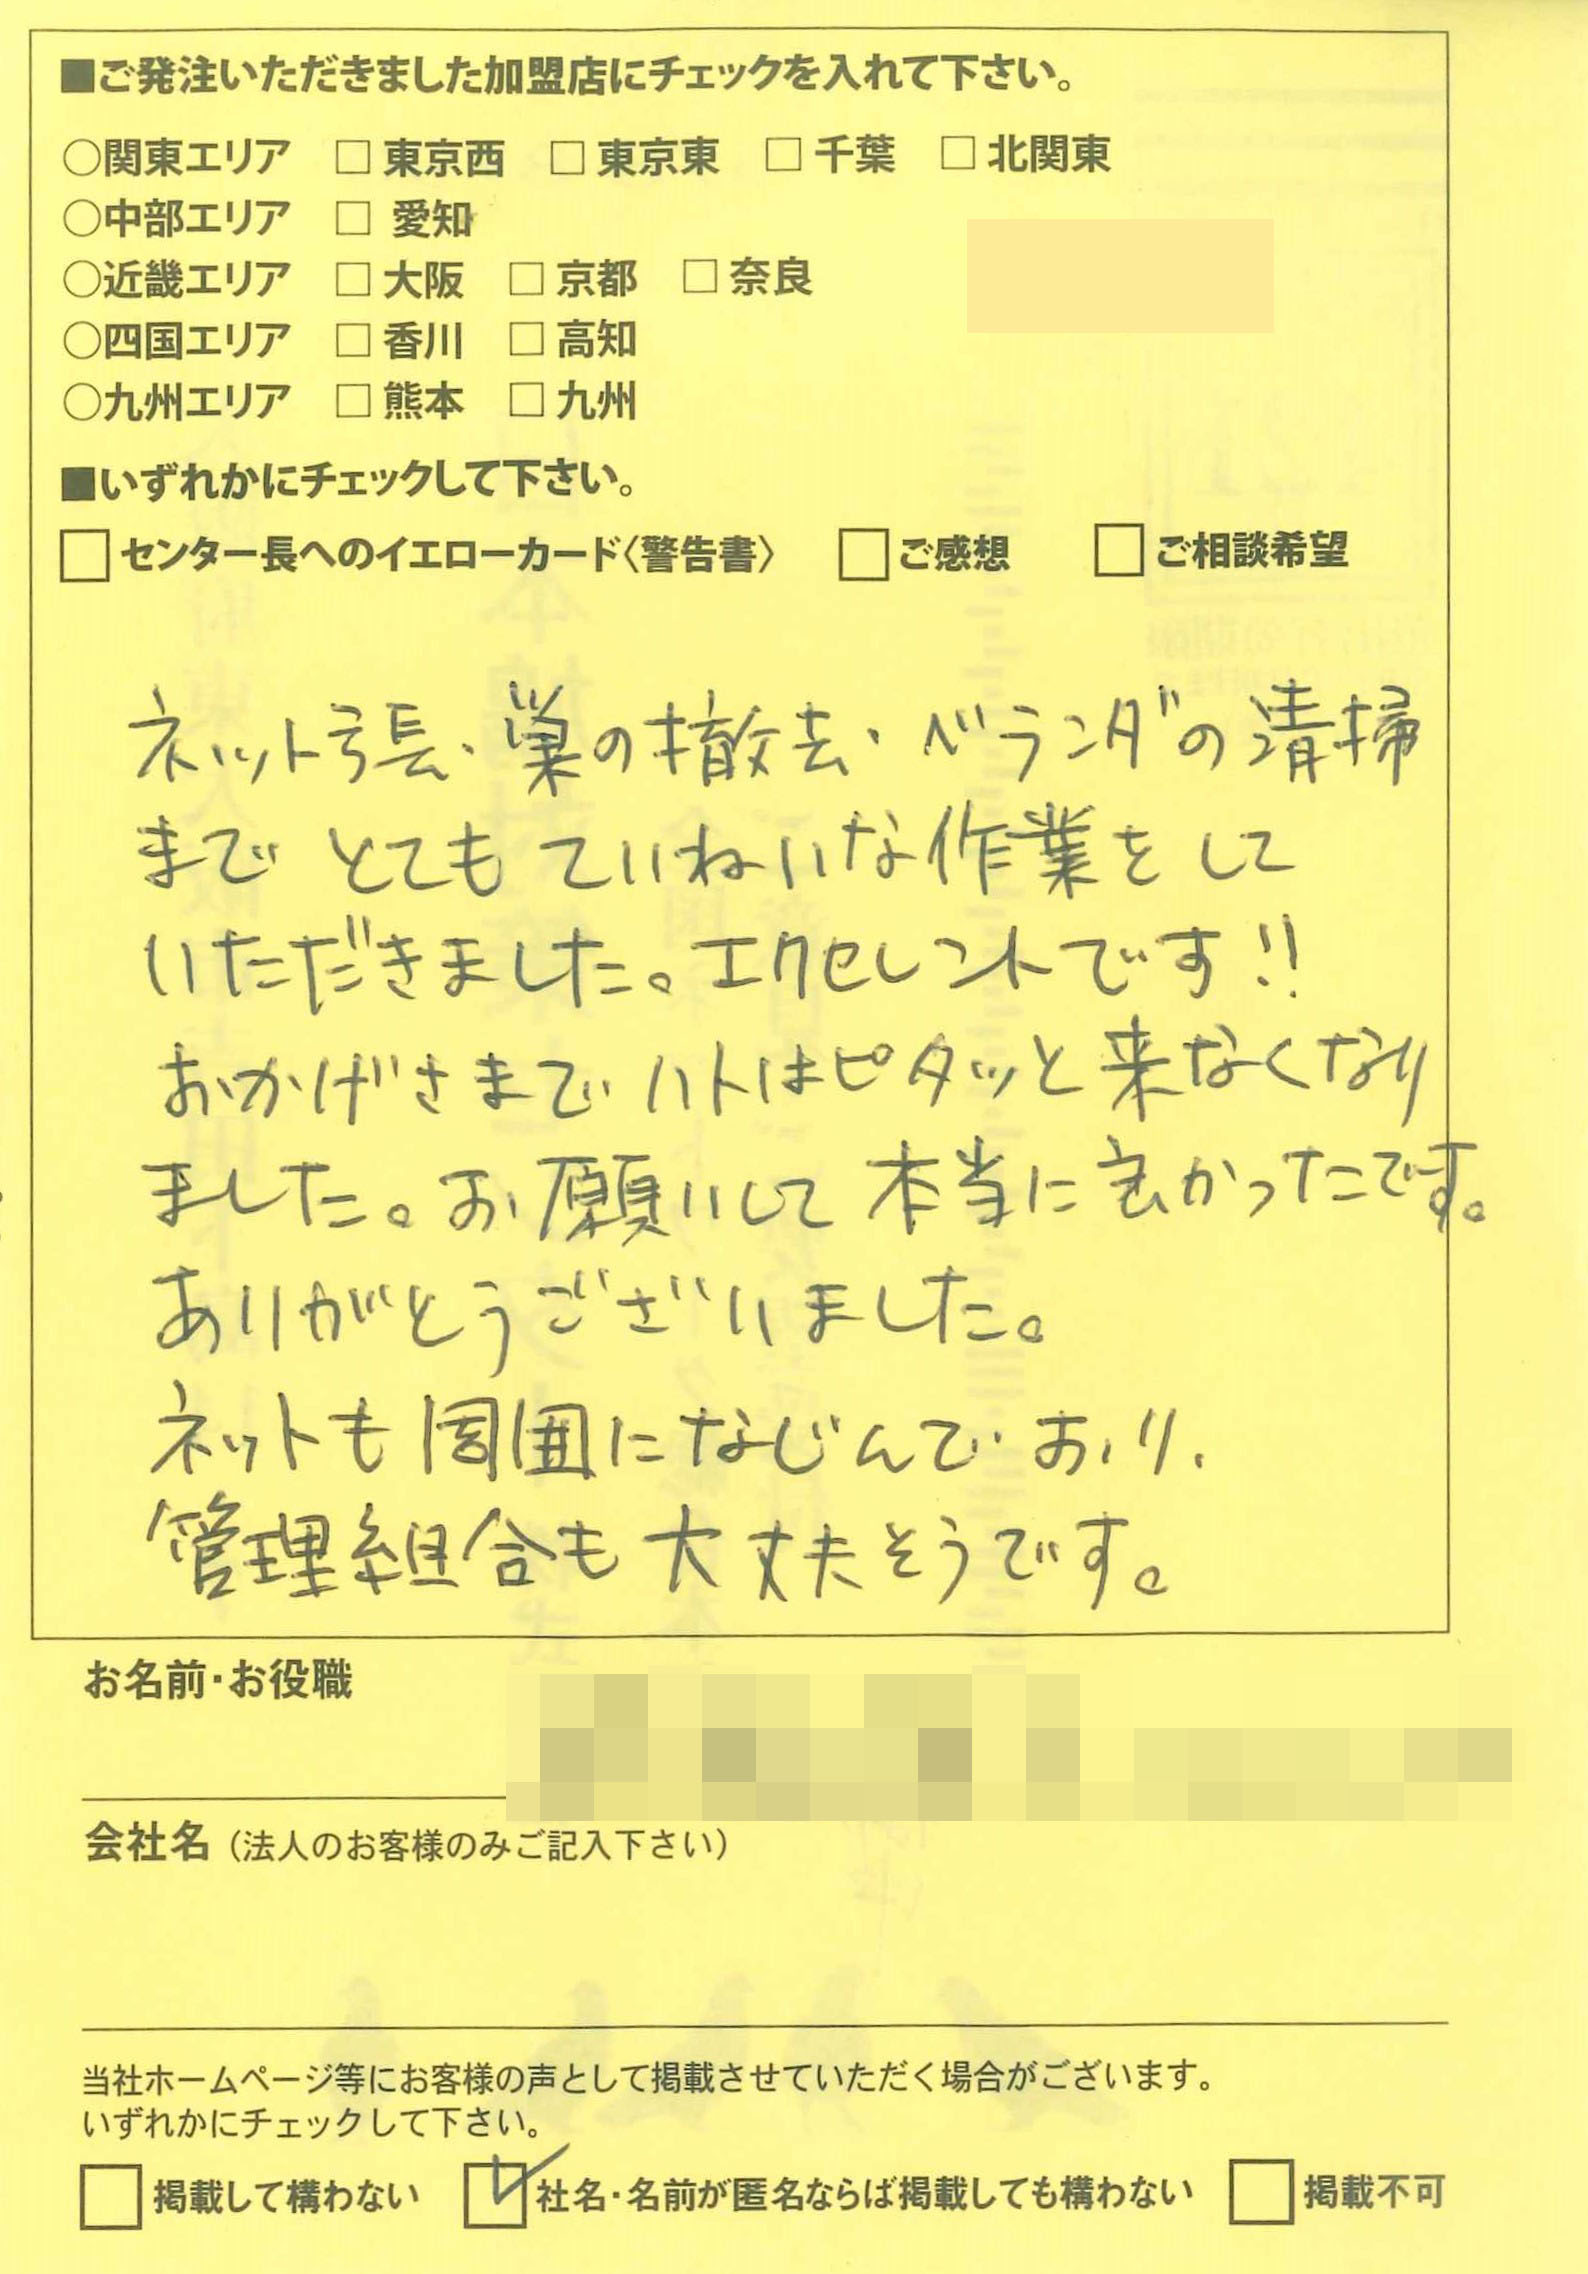 ■ご発注いただきました加盟店にチェックを入れて下さい。
○関東エリア □ 東京西 □ 東京東 □ 千葉 □ 北関東
○中部エリア □ 愛知
○近畿エリア □ 大阪 □ 京都 □ 奈良
○四国エリア □ 香川 □ 高知
○九州エリア □ 熊本 □ 九州
■いずれかにチェックして下さい。
□ センター長へのイエローカード〈警告書〉 □ ご感想 □ ご相談希望
ネット張、巣の撤去、ベランダの清掃
まで とても ていねいな作業をして
いただきました。エクセレントです!!
おかげさまで ハトはピタッと来なくなり
ました。お願いして 本当に良かったです。
ありがとうございました。
ネットも周囲になじんで おり、
管理組合も大丈夫そうです。
お名前・お役職
会社名（法人のお客様のみご記入下さい）
当社ホームページ等にお客様の声として掲載させていただく場合がございます。
いずれかにチェックして下さい。
□ 掲載して構わない ☑ 社名・名前が匿名ならば掲載しても構わない □ 掲載不可